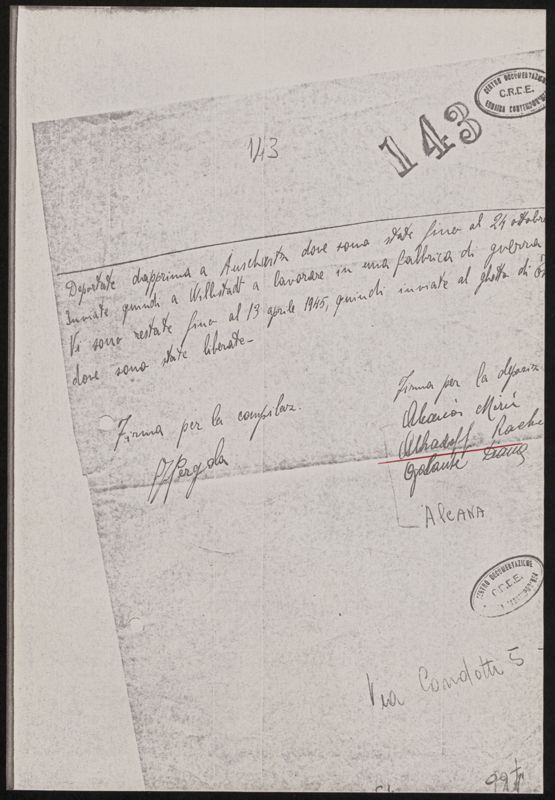 CENTRO DOCUMENTAZIONE
C.R.D.E.
EBRAICA CONTEMPORANEA
143
143
Deportate dapprima a Auschwitz dove sono state fino al 24 ottobre
Inviate quindi a Willistadt a lavorare in una fabbrica di guerra
Vi sono restate fino al 13 aprile 1945, quindi inviate al ghetto di
dove sono state liberate-
Firma per la compilaz.
Firma per la deposiz.
Pergola
Alcanà Mirù
Alhadeff Rache
Galante Diana
Alcana
CENTRO DOCUMENTAZIONE
C.R.D.E.
Via Condotti 5